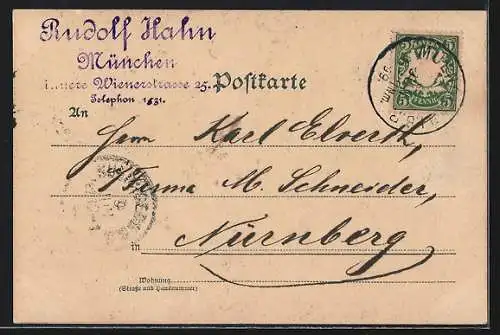 Rudolf Hahn
München
Innere Wienerstrasse 25.
Telephon 1631.
Postkarte
5 5
PFENNIG
An
Herrn Karl Elverth,
Firma M. Schneider,
in Nürnberg
Wohnung
(Straße und Hausnummer)